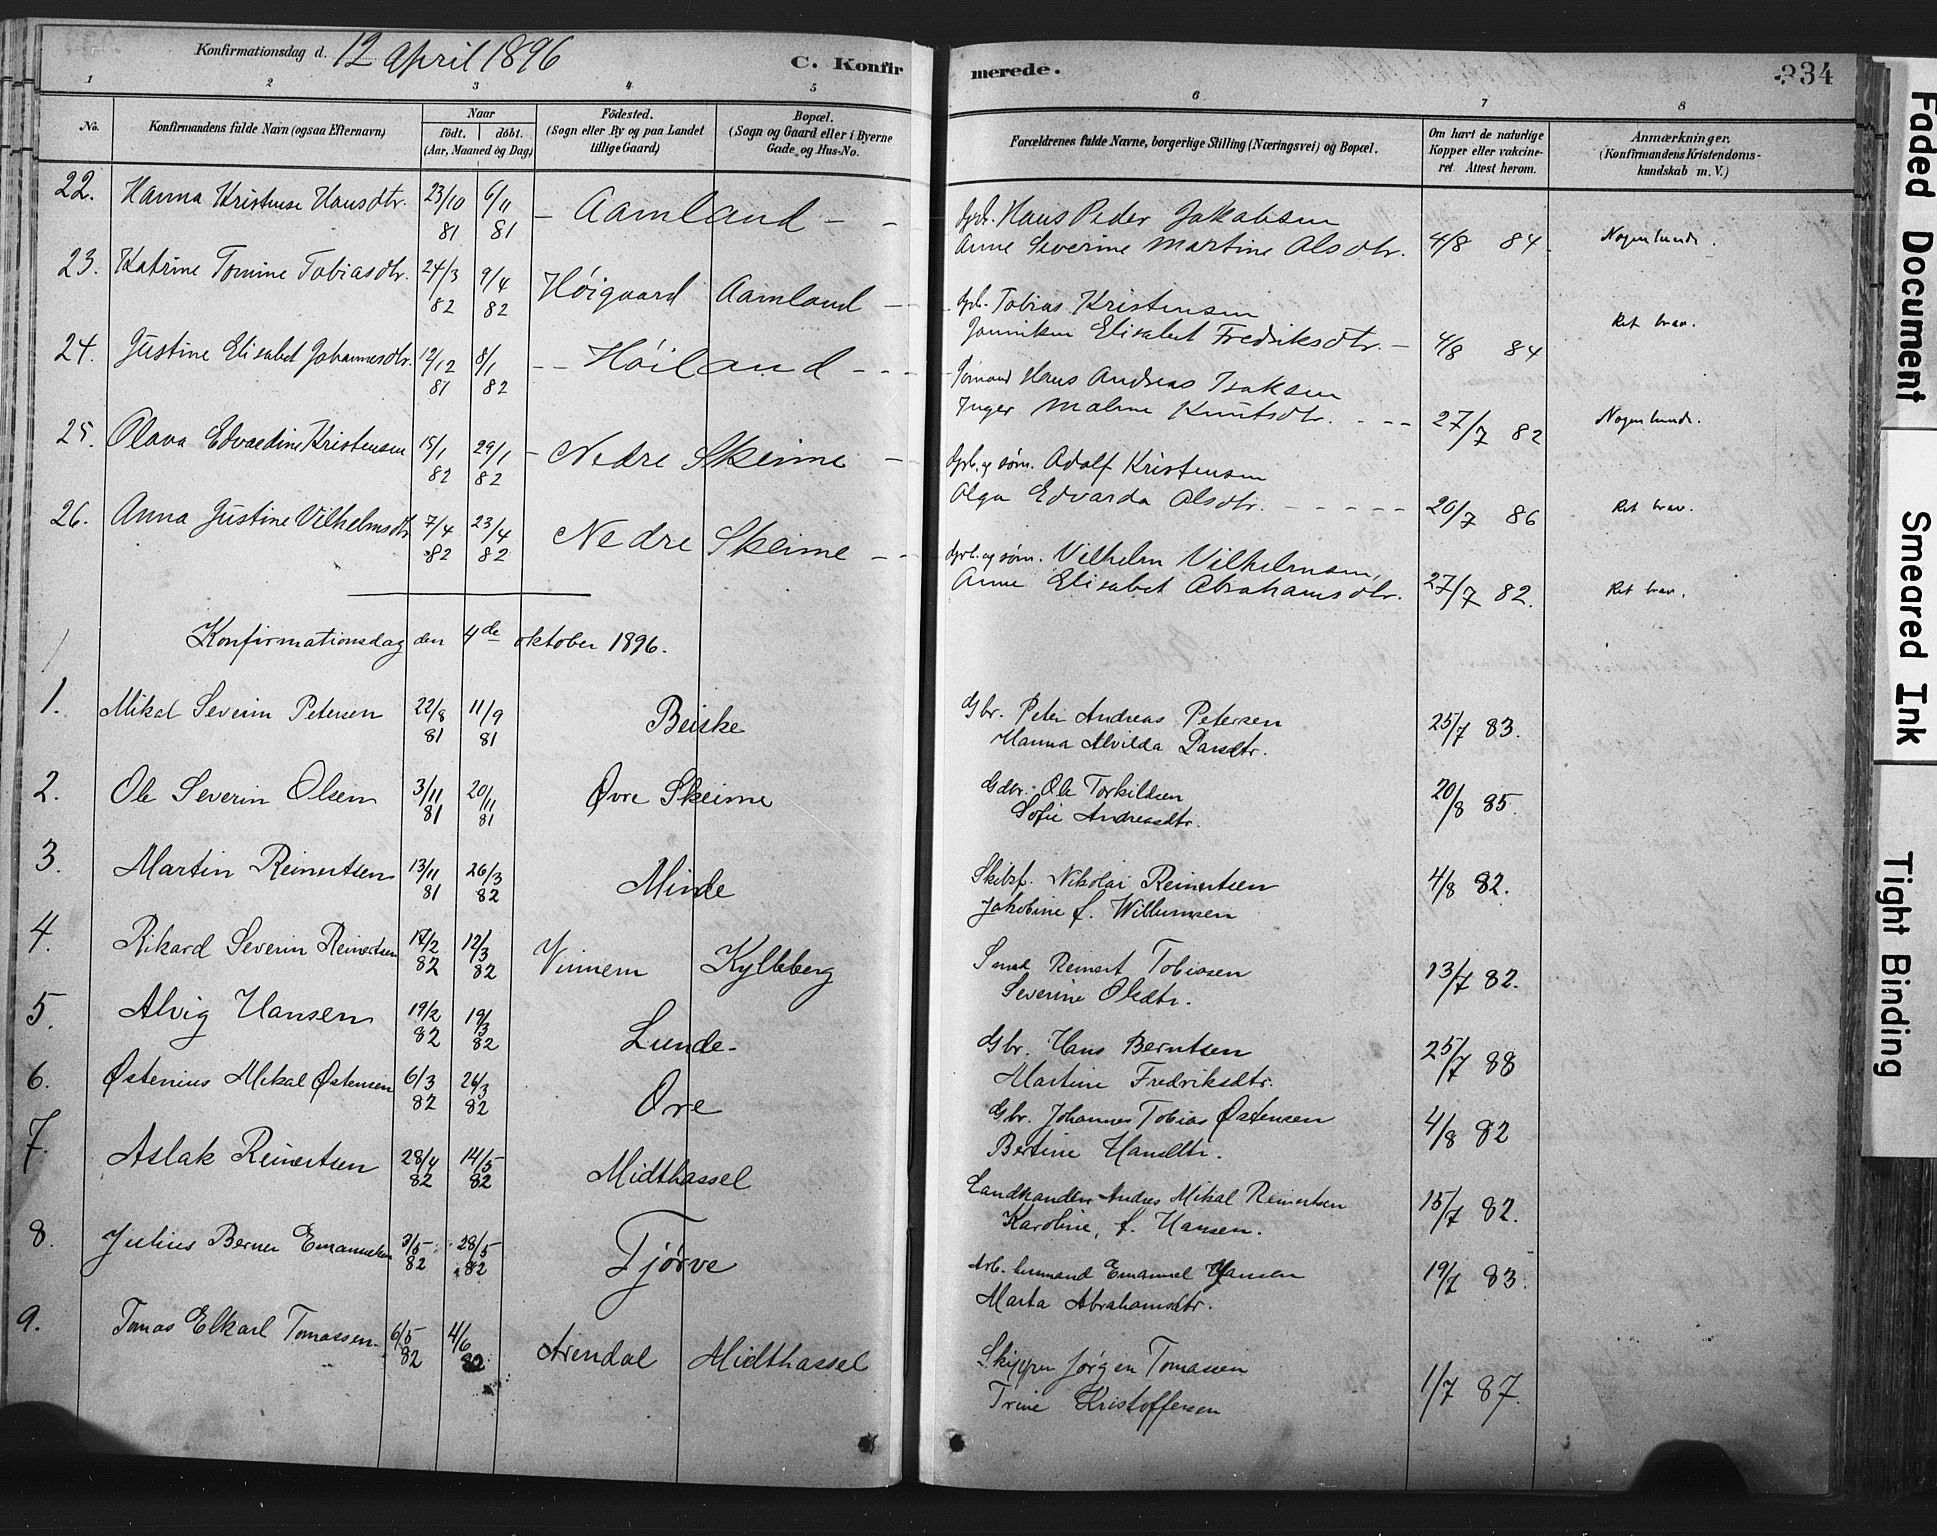 Konfirmationsdag d. 12 April 1896
C. Konfirmerede.
334
1 2 3 4 5 6 7 8
No.
Konfirmandens fulde Navn (ogsaa Efternavn)
Naar
födt. döbt.
(Aar, Maaned og Dag)
Födested.
(Sogn eller By og paa Landet
tillige Gaard)
Bopæl.
(Sogn og Gaard eller i Byerne
Gade og Hus-No.
Forældrenes fulde Navne, borgerlige Stilling (Næringsvei) og Bopæl.
Om havt de naturlige
Kopper eller vakcine-
ret Attest herom.
Anmærkninger.
(Konfirmandens Kristendoms-
kundskab m. V.)
22. Hanna Kristense Hansdtr. 23/10 81 6/11 81 - Aamland - -
Grb. Hans Peder Jakobsen
Anne Severine Martine Olsdtr. 4/8 84. Nogenlunde.
23. Katrine Tomine Tobiasdtr. 24/3 82 9/4 82 Høigaard Aamland -
Grb. Tobias Kristensen
Jonniken Elisabet Fredriksdtr. - 4/8 84 Ret brav.
24. Justine Elisabet Johannesdtr. 12/12 81 8/1 82 -- Höiland ---
Hans Andreas Isaksen
Inger Malene Knutsdtr. --- 27/7 82 Nogenlunde.
25. Olava Edvardine Kristensen 15/1 82 29/1 82 - Nedre Skeime -
Grb. og søm. Adolf Kristensen
Olga Edvarda Olsdtr. ----- 20/7 86 Ret brav.
26. Anna Justine Vilhelmsdtr 7/4 82 23/4 82 Nedre Skeime --
Grb. og søm. Vilhelm Vilhelmsen,
Anne Elisabet Abrahamsdtr. 27/7 82. Ret brav.
Konfirmationsdag den 4de oktober 1896.
1. Mikal Severin Petersen 22/8 81 11/9 81 Beiske
Gbr. Peter Andreas Petersen
Hanna Alvilda Larsdtr. 25/7 83.
2. Ole Severin Olsen 3/11 81 20/11 81 Øvre Skeime
Gdbr. Ole Torkildsen
Sofie Andreasdtr. 20/8 85.
3. Martin Reinertsen 13/11 81 26/3 82 Minde
Skibsf. Nikolai Reinertsen
Jakobine f. Willumsen 4/8 82.
4. Rikard Severin Reinertsen 17/2 82 12/3 82 Vinnem Kylleberg
Smed Reinert Tobiasen
Severine Olsdtr. 13/7 82.
5. Alvig Hansen 19/2 82 19/3 82 Lunde-
Gbr. Hans Berntsen
Martine Fredriksdtr. 25/7 88
6. Østenius Mikal Østensen 6/3 82 26/3 82 Ore
Gbr. Johannes Tobias Østensen
Bertine Hansdtr. 4/8 82
7. Aslak Reinertsen 28/4 82 14/5 82 Midthassel
Landhandler Andreas Mikal Reinertsen
Karoline, f. Hansen. 15/7 82.
8. Julius Berner Emanuelsen 3/5 82 28/5 82 Tjörve
Emanuel Hansen
Marta Abrahamsdtr. 19/7 83.
9. Tomas Elkarl Tomassen 6/5 82 4/6 82 Arendal Midthassel
Skipper Jørgen Tomassen
Trine Kristoffersen 1/7 87.
Faded Document
Smeared Ink
Tight Binding